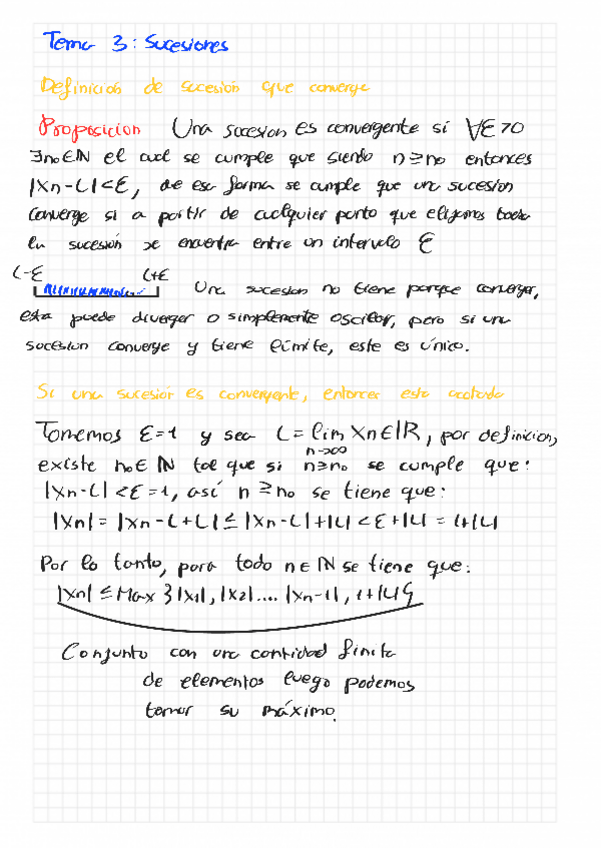 Tema 3: Sucesiones
Definición de sucesion que converge
Proposicion Una sucesion es convergente si ∀ε>0
∃n₀∈ℕ el cual se cumple que siendo n≥n₀ entonces
|Xn-L|<ε, de esa forma se cumple que una sucesion
converge si a partir de cualquier punto que elijamos toda
la sucesión se encuentra entre un intervalo ε
L-ε L+ε Una sucesion no tiene porque converger,
esta puede diverger o simplemente oscilar, pero si una
sucesion converge y tiene límite, este es único.
Si una sucesión es convergente, entonces esta acotada
Tomemos ε=1 y sea L=lim Xn∈ℝ, por definicion,
n→∞
existe n₀∈ℕ tal que si n≥n₀ se cumple que:
|Xn-L|<ε=1, así n≥n₀ se tiene que:
|Xn|=|Xn-L+L|≤|Xn-L|+|L|<ε+|L|=1+|L|
Por lo tanto, para todo n∈ℕ se tiene que:
|Xn|≤Max {|X1|,|X2|....|Xn-1|,1+|L|}
Conjunto con una cantidad finita
de elementos luego podemos
tomar su máximo.